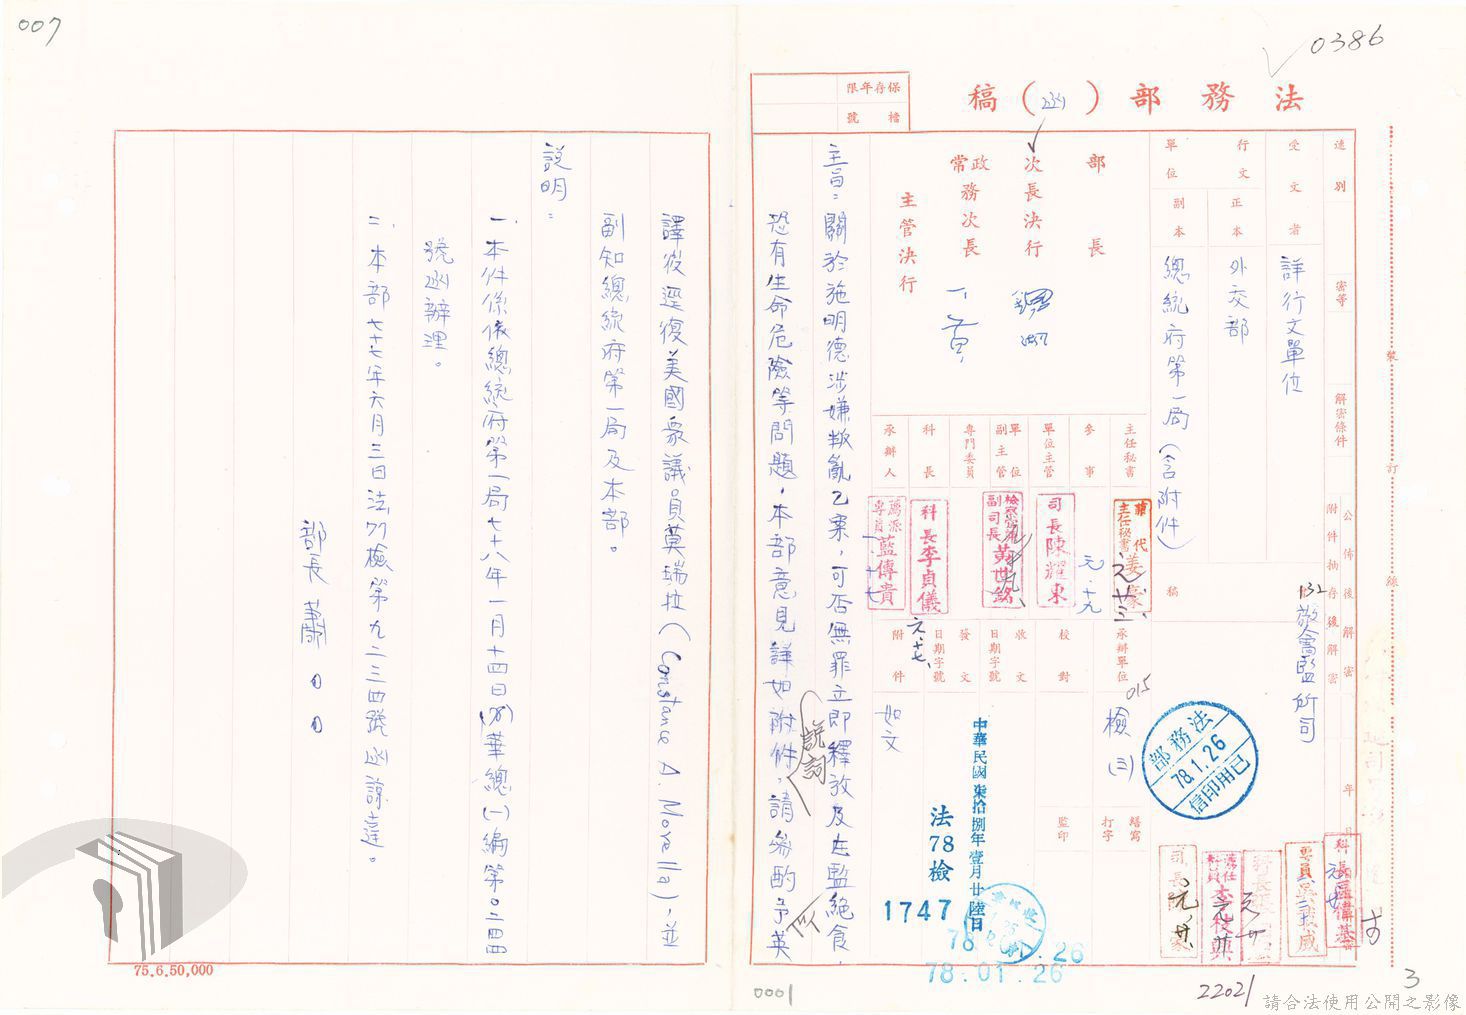 007
0386
法務部（函）稿
保存年限
檔號
速別
密等
解密條件
公佈後解密
附件抽存後解密
年 月
受文者
詳行文單位
行文單位
正本
外交部
副本
總統府第一局（含附件）
132
會監所司
部長
次長決行
政務次長
常
主管決行
主任秘書
參事
單位主管
單位副主管
專門委員
科長
承辦人
司長陳耀東
副司長黃世銘
科長李貞儀
專員藍傳貴
元、十九
元、十七、
稿
承辦單位
015
檢（三）
校對
收文
日期字號
發文
日期字號
附件
如文
繕寫
打字
監印
法務部
78.1.26
信印用已
中華民國柒拾捌年壹月廿陸日
法78檢
1747
78.01.26
主旨：關於施明德涉嫌叛亂乙案，可否無罪立即釋放及在監絕食，
恐有生命危險等問題，本部意見詳如附件說詞，請參酌予英
譯後逕復美國眾議員莫瑞拉（Constance A. Morella），並
副知總統府第一局及本部。
說明：
一、本件係依總統府第一局七十八年一月十四日(78)華總(一)編第○二四四
號函辦理。
二、本部七十七年六月三日法77檢第九二三四號函諒達。
部長 蕭○○
裝
訂
線
75.6.50,000
0001
22021
3
請合法使用公開之影像